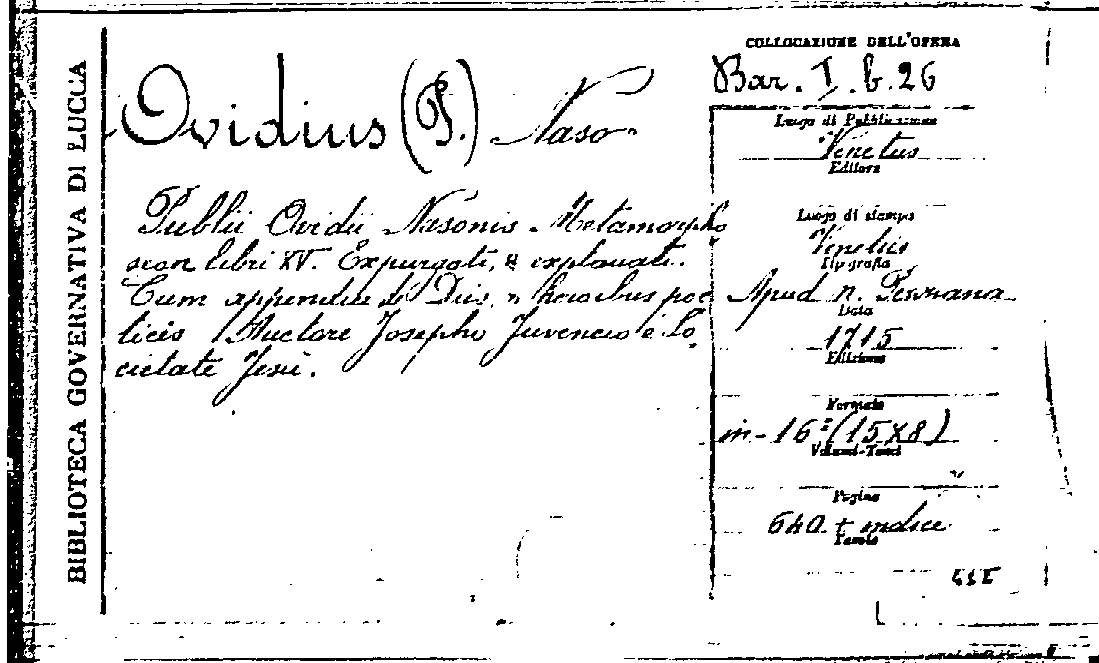 BIBLIOTECA GOVERNATIVA DI LUCCA
Ovidius (P.) Naso
Publii Ovidii Nasonis Metamorpho
seon libri XV. Expurgati, & explanati.
Cum appendice de Diis, & heroibus poe
ticis Auctore Josepho Juvencio e So
cietate Jesu.
COLLOCAZIONE DELL'OPERA
Bar. I. b. 26
Luogo di Pubblicazione
Venetiis
Editore
Luogo di stampa
Venetiis
Tipografia
Apud N. Pezzana
Data
1715
Edizione
Formato
in-16° (15x8)
Volumi-Tomi
Pagine
640 + indice
Tavole